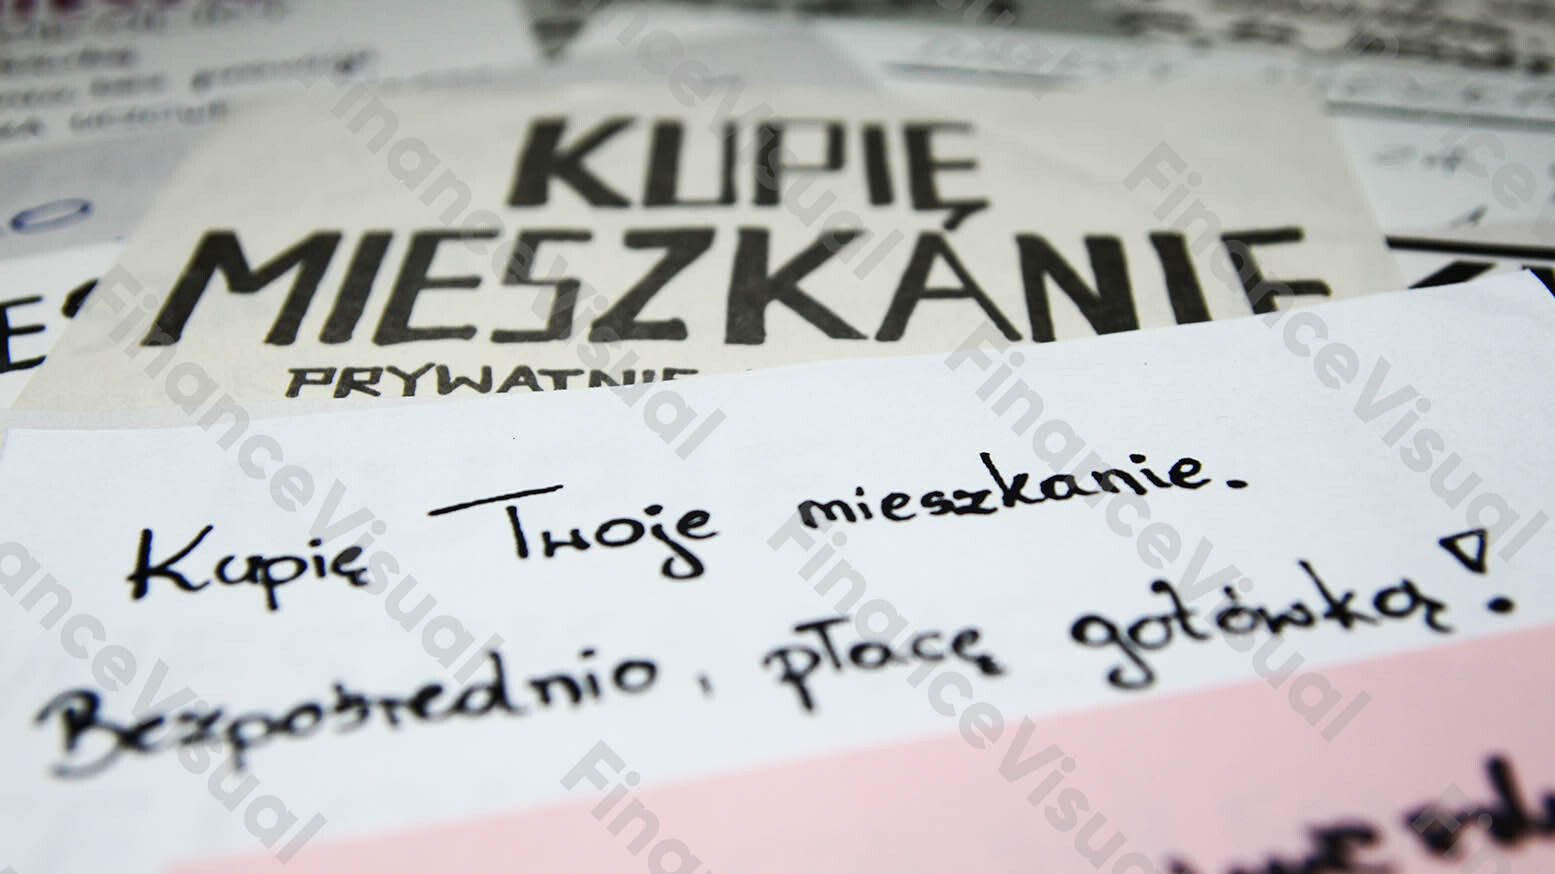 KUPIĘ
MIESZKANIE
PRYWATNIE
Kupię Twoje mieszkanie.
Bezpośrednio, płacę gotówką!
FinanceVisual
FinanceVisual
FinanceVisual
FinanceVisual
FinanceVisual
FinanceVisual
FinanceVisual